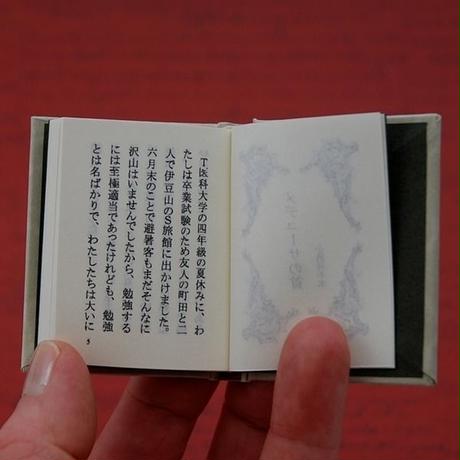 メデューサの首
T医科大学の四年級の夏休みに、わ
たしは卒業試験のため友人の町田と二
人で伊豆山のS旅館に出かけました。
六月末のことで避暑客もまだそんなに
沢山はいませんでしたから、勉強する
には至極適当であつたけれども、勉強
とは名ばかりで、わたしたちは大いに
5